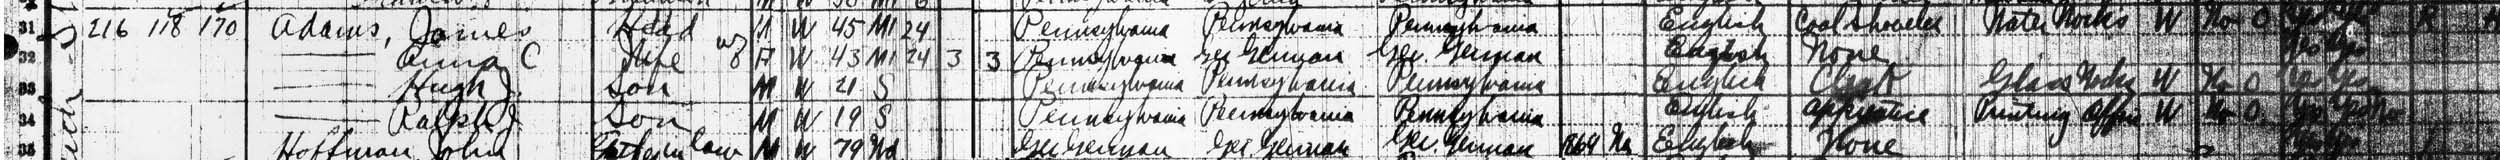 31 216 118 170 Adams, James Head M W 45 M1 24 Pennsylvania Pennsylvania Pennsylvania English Coal shoveler Water Works W No 0 Yes Yes R
32 Anna C Wife F W 43 M1 24 3 3 Pennsylvania Ger German Ger. German English None Yes Yes
33 Hugh J. Son M W 21 S Pennsylvania Pennsylvania Pennsylvania English Clerk Glass Works W No 0 Yes Yes
34 Ralph J Son M W 19 S Pennsylvania Pennsylvania Pennsylvania English apprentice Printing Office W No 0 Yes Yes No
35 Hoffman John Father in law M W 79 Wd Ger German Ger. German Ger. German 1864 Na English None